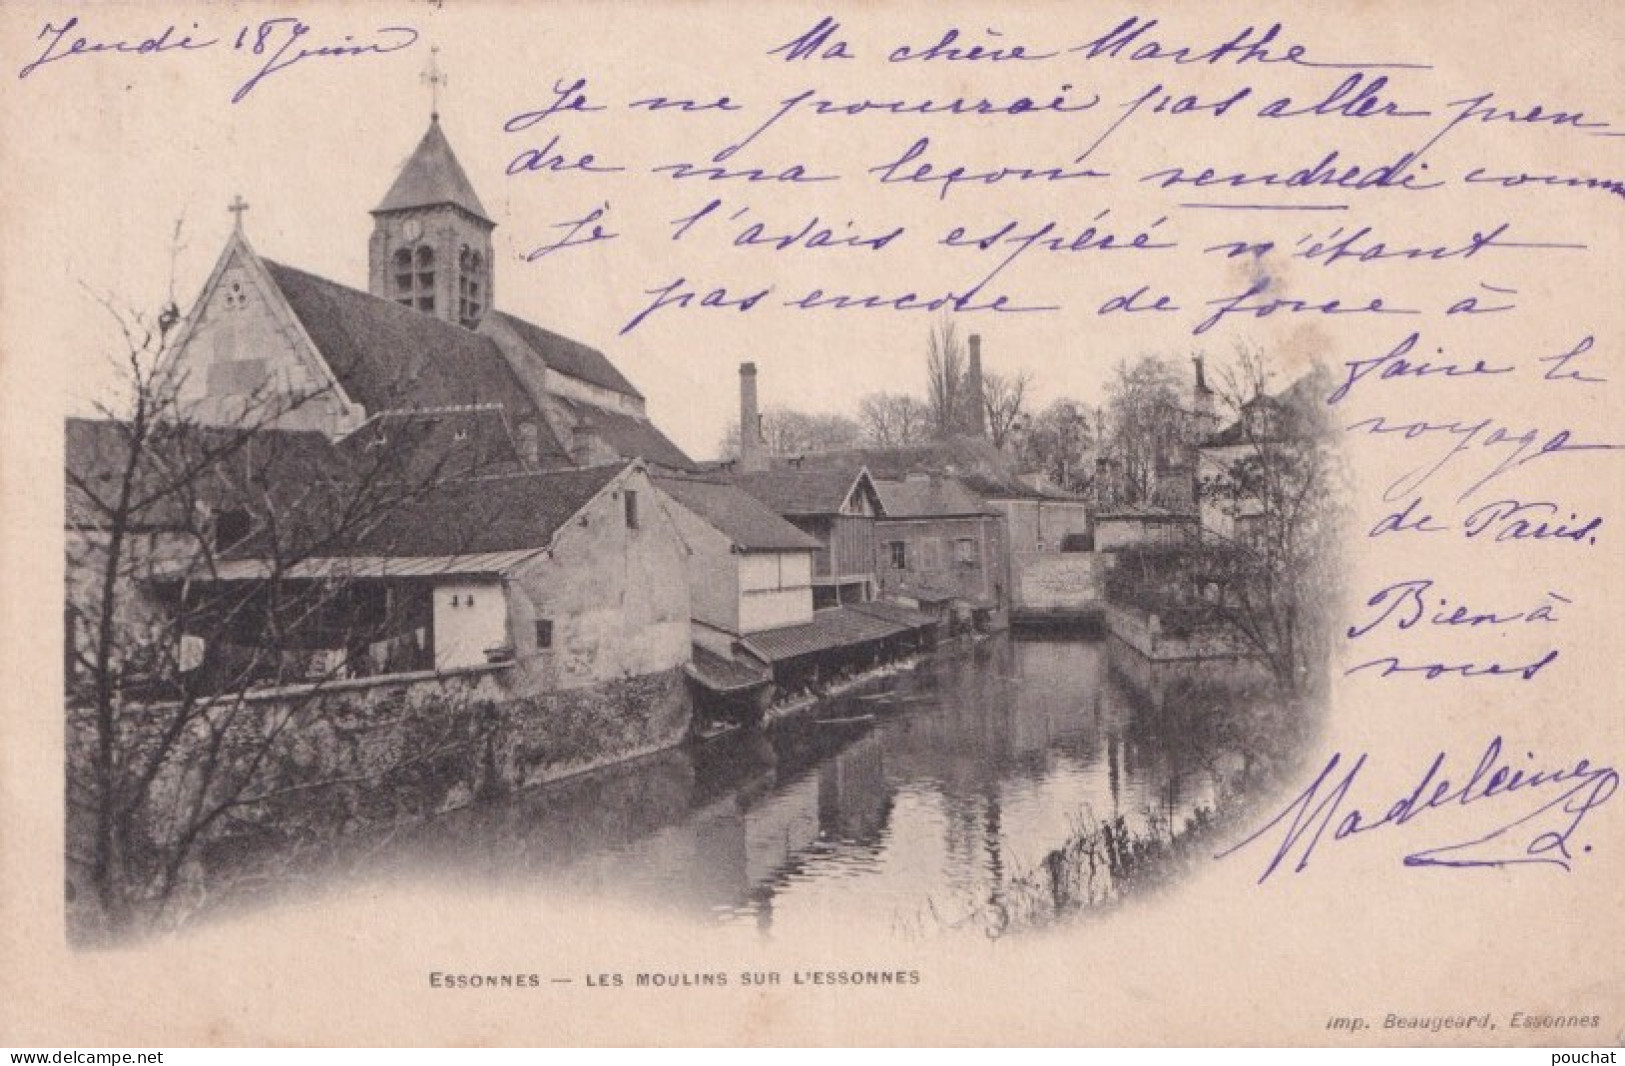 Jeudi 18 Juin
Ma chère Marthe
Je ne pourrai pas aller pren-
dre ma leçon vendredi comme
je l'avais espéré n'étant
pas encore de force à
faire le
voyage
de Paris.
Bien à
vous
Madeleine
L.
ESSONNES — LES MOULINS SUR L'ESSONNES
Imp. Beaugeard, Essonnes
www.delcampe.net
pouchat